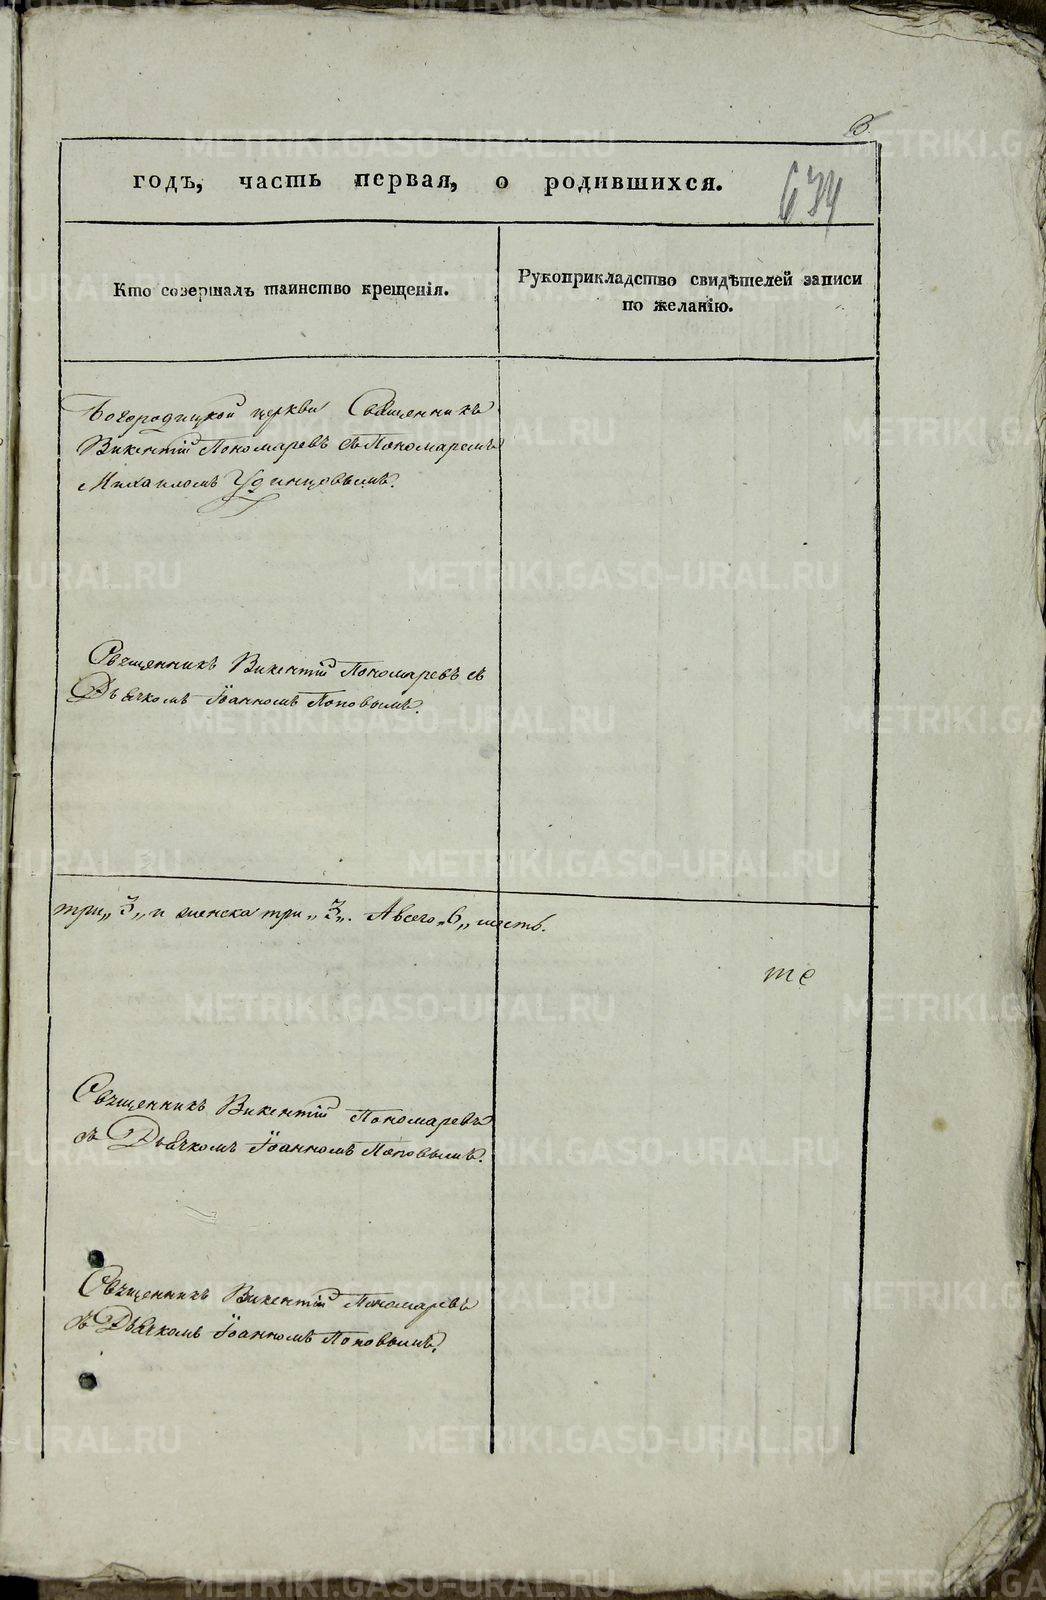 634
годъ, часть первая, о родившихся.
Кто совершалъ таинство крещенія.
Рукоприкладство свидѣтелей записи
по желанію.
Богородицкой церкви Священникъ
Викентій Пономаревъ съ Пономаремъ
Михаиломъ Удинцовымъ.
Священникъ Викентій Пономаревъ съ
Дьячкомъ Іоанномъ Поповымъ.
три „3„ и женска три „3„. А всего „6„ шесть.
те
Священникъ Викентій Пономаревъ
съ Дьячкомъ Іоанномъ Поповымъ.
Священникъ Викентій Пономаревъ
съ Дьячкомъ Іоанномъ Поповымъ.
METRIKI.GASO-URAL.RU